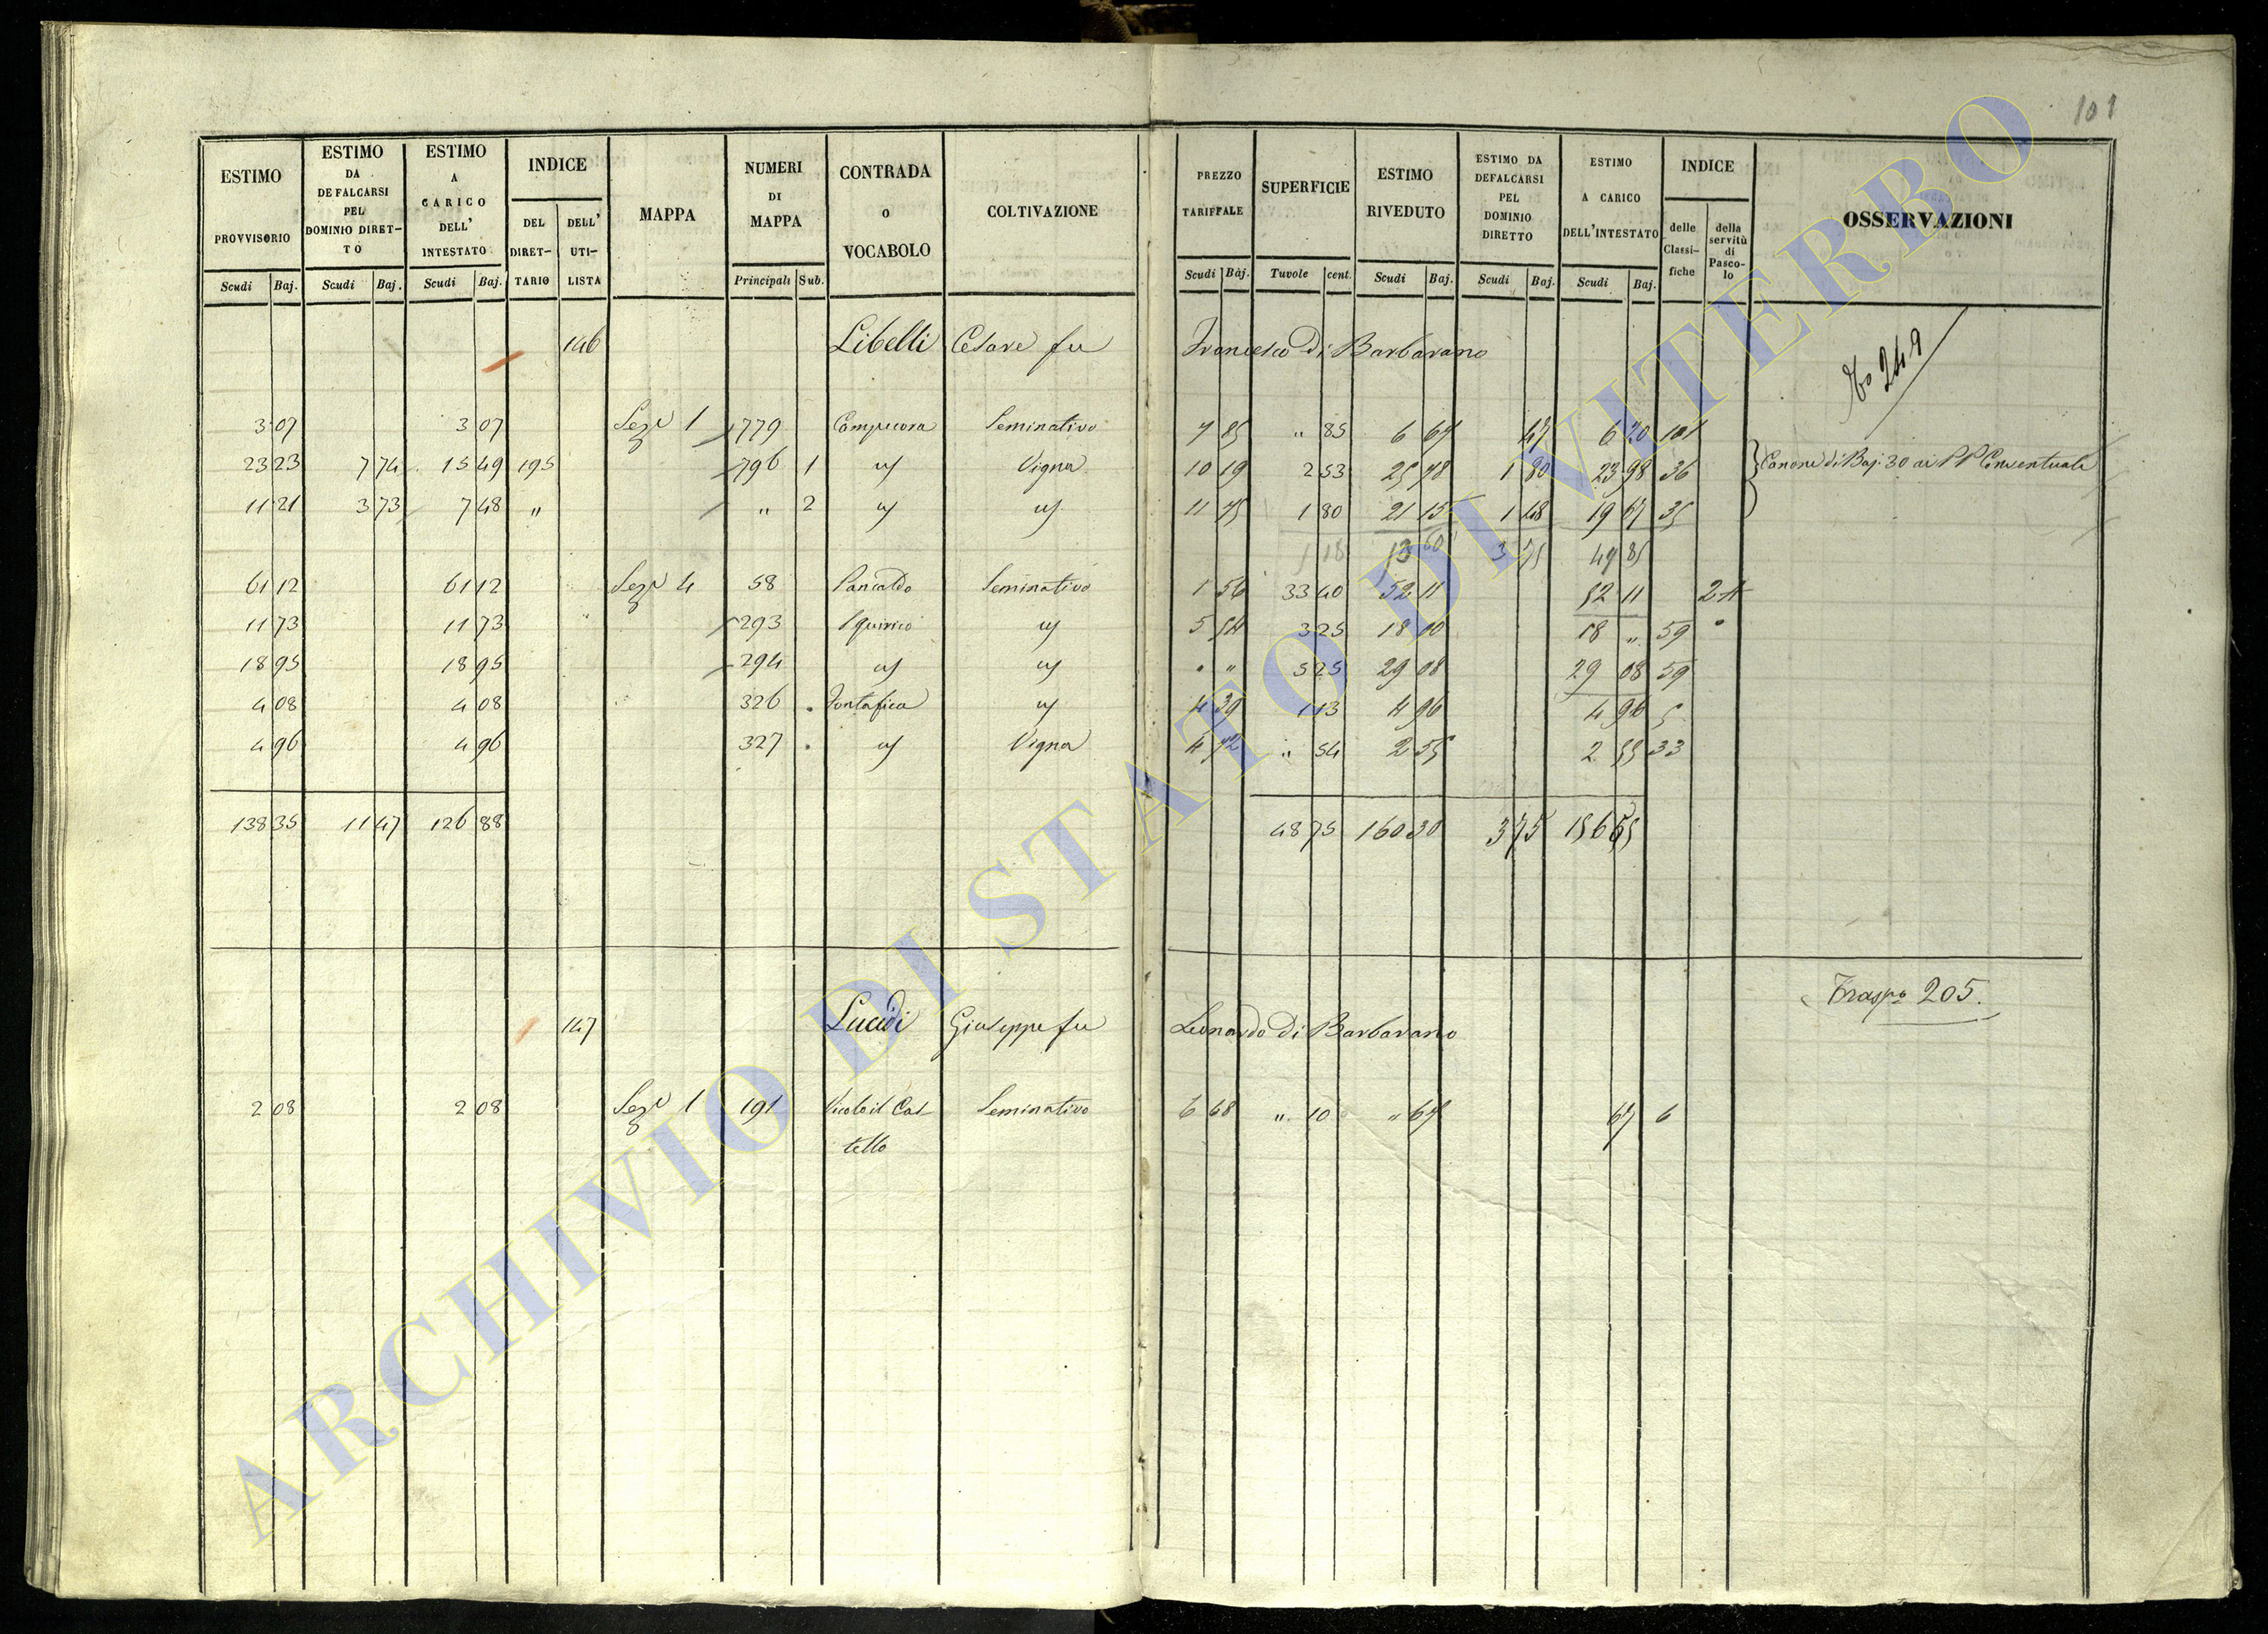 101
ESTIMO PROVVISORIO Scudi Baj.
ESTIMO DA DEFALCARSI PEL DOMINIO DIRET-TO Scudi Baj.
ESTIMO A CARICO DELL' INTESTATO Scudi Baj.
INDICE DEL DIRET-TARIO DELL' UTI-LISTA
MAPPA
NUMERI DI MAPPA Principali Sub.
CONTRADA O VOCABOLO
COLTIVAZIONE
PREZZO TARIFFALE Scudi Baj.
SUPERFICIE Tavole cent.
ESTIMO RIVEDUTO Scudi Baj.
ESTIMO DA DEFALCARSI PEL DOMINIO DIRETTO Scudi Baj.
ESTIMO A CARICO DELL'INTESTATO Scudi Baj.
INDICE delle Classi-fiche della servitù di Pasco-lo
OSSERVAZIONI
146 Libelli Cesare fu Francesco di Barbarano
No 249
3 07 3 07 Sezе 1 779 Campicora Seminativo 7 85 " 85 6 67 47 6 20 101
23 23 7 74 15 49 195 796 1 " Vigna 10 19 2 53 25 78 1 80 23 98 36 Canone di Baj. 30 ai PP Conventuali
11 21 3 73 7 48 " " 2 " " 11 75 1 80 21 15 1 48 19 67 35
1 18 13 60 3 75 49 85
61 12 61 12 Seze 4 58 Pancaldo Seminativo 1 56 33 40 52 11 52 11 2
11 73 11 73 293 S quirico " 5 54 3 25 18 10 18 " 59
18 95 18 95 294 " " " " 5 25 29 08 29 08 59
4 08 4 08 326 Fontafica " 4 39 1 13 4 96 4 96 5
4 96 4 96 327 " Vigna 4 72 " 54 2 55 2 55 33
138 35 11 47 126 88 48 75 160 30 3 75 156 55
Traspo 205.
147 Lucidi Giuseppe fu Leonardo di Barbarano
2 08 2 08 Seze 1 191 Vicolo il Cas Seminativo 6 68 " 10 " 67 67 6
tello
ARCHIVIO DI STATO DI VITERBO